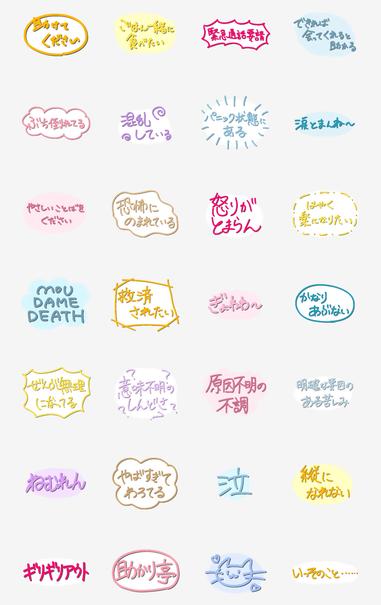 助けて
ください
ごはん一緒に
食べたい
緊急通話要請
できれば
会ってくれると
助かる
ぶち倒れてる
混乱
している
パニック状態に
ある
涙とまんね〜
やさしいことばを
ください
恐怖に
のまれている
怒りが
とまらん
はやく
楽になりたい
mou
DAME
DEATH
救済
されたい
ぎょわわ〜
かなり
あぶない
ぜんぶ無理
になってる
意味不明の
しんどさ
原因不明の
不調
明確な原因の
ある苦しみ
ねむれん
やばすぎて
わろてる
泣
縦に
なれない
ギリギリアウト
助かり亭
いっそのこと……